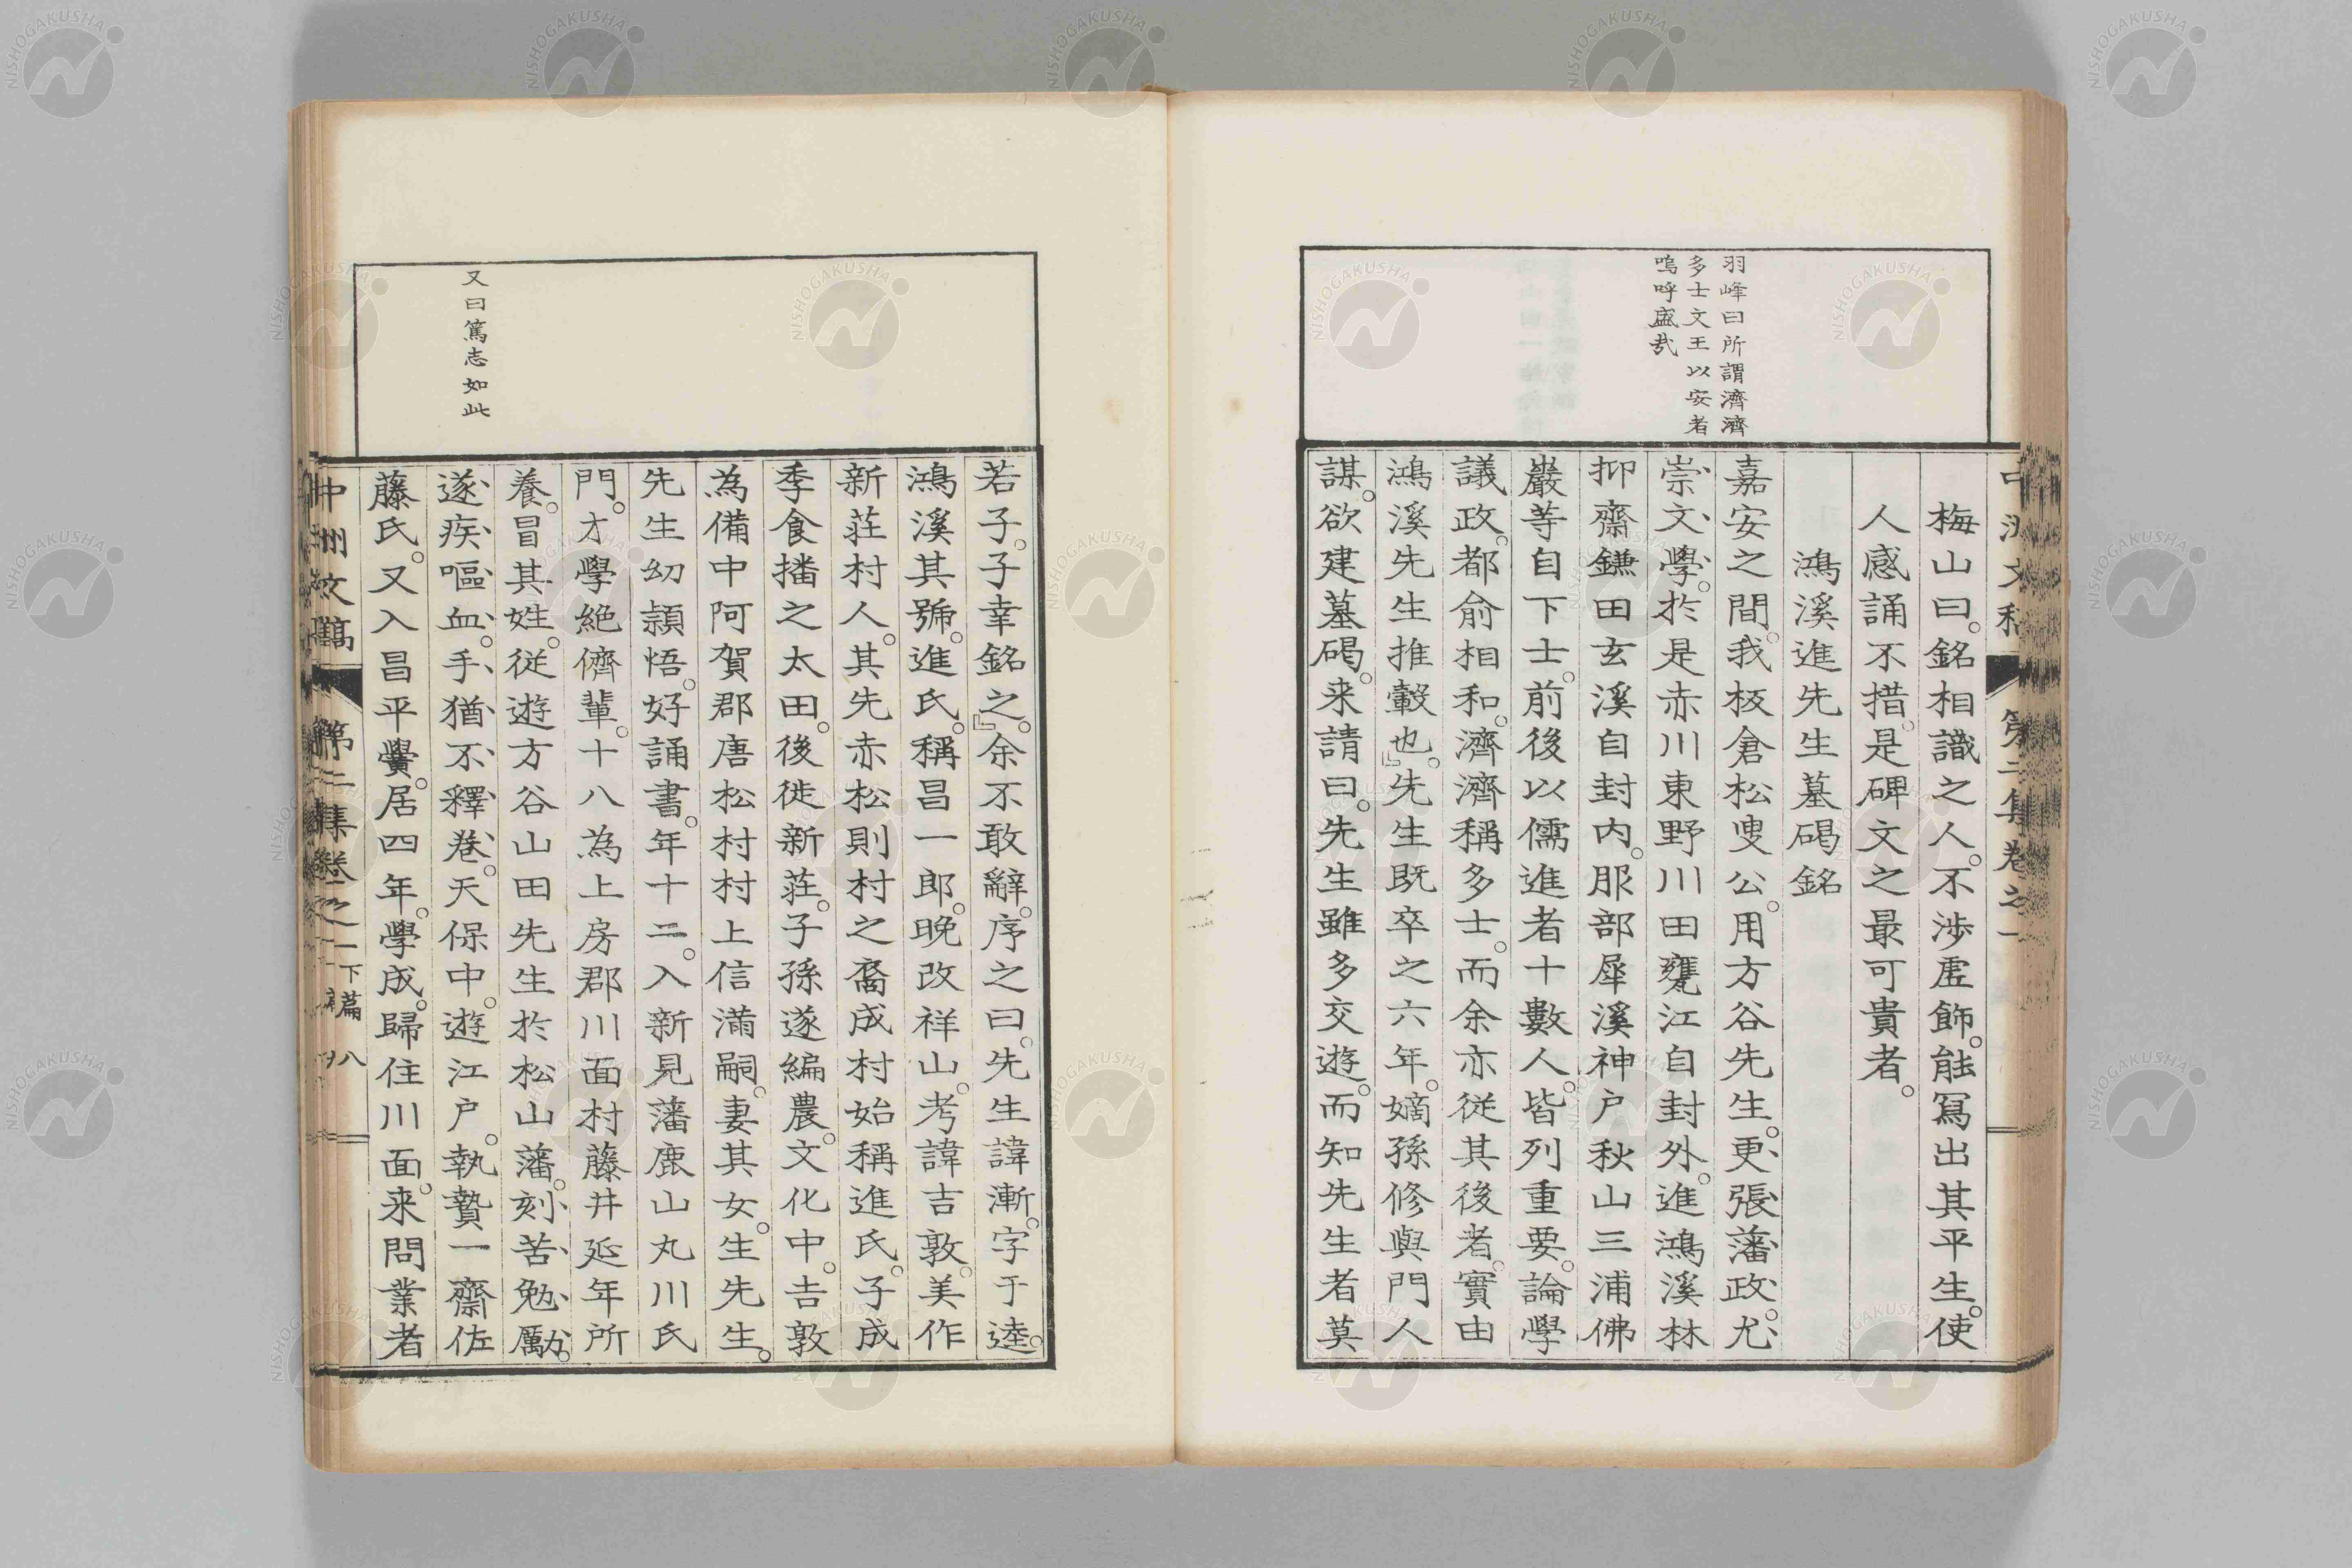 中洲文稿 第二集卷之一
羽峰曰所謂濟濟
多士文王以安者
嗚呼盛哉
梅山曰。銘相識之人。不涉虛飾。能冩出其平生。使
人感誦不措。是碑文之最可貴者。
鴻溪進先生墓碣銘
嘉安之間。我板倉松叟公。用方谷先生。更張藩政。尤
崇文學。於是赤川東野川田甕江自封外。進鴻溪林
抑齋鎌田玄溪自封内。服部犀溪神戸秋山三浦佛
巖等自下士。前後以儒進者十數人。皆列重要。論學
議政。都俞相和。濟濟稱多士。而余亦従其後者。實由
鴻溪先生推轂也。』先生既卒之六年。嫡孫修與門人
謀。欲建墓碣。来請曰。先生雖多交遊。而知先生者莫
又曰篤志如此
若子。子幸銘之。』余不敢辭。序之曰。先生諱漸。字于逵。
鴻溪其號。進氏。稱昌一郎。晩改祥山。考諱吉敦。美作
新莊村人。其先赤松則村之裔成村始稱進氏。子成
季食播之太田。後徙新莊。子孫遂編農。文化中。吉敦
為備中阿賀郡唐松村村上信滿嗣。妻其女。生先生。
先生幼頴悟。好誦書。年十二。入新見藩鹿山丸川氏
門。才學絶儕輩。十八為上房郡川面村藤井延年所
養。冒其姓。従遊方谷山田先生於松山藩。刻苦勉勵。
遂疾嘔血。手猶不釋巻。天保中。遊江戸。執贄一齋佐
藤氏。又入昌平黌。居四年。學成。歸住川面。来問業者
中洲文稿 第二集卷之一 下篇 八